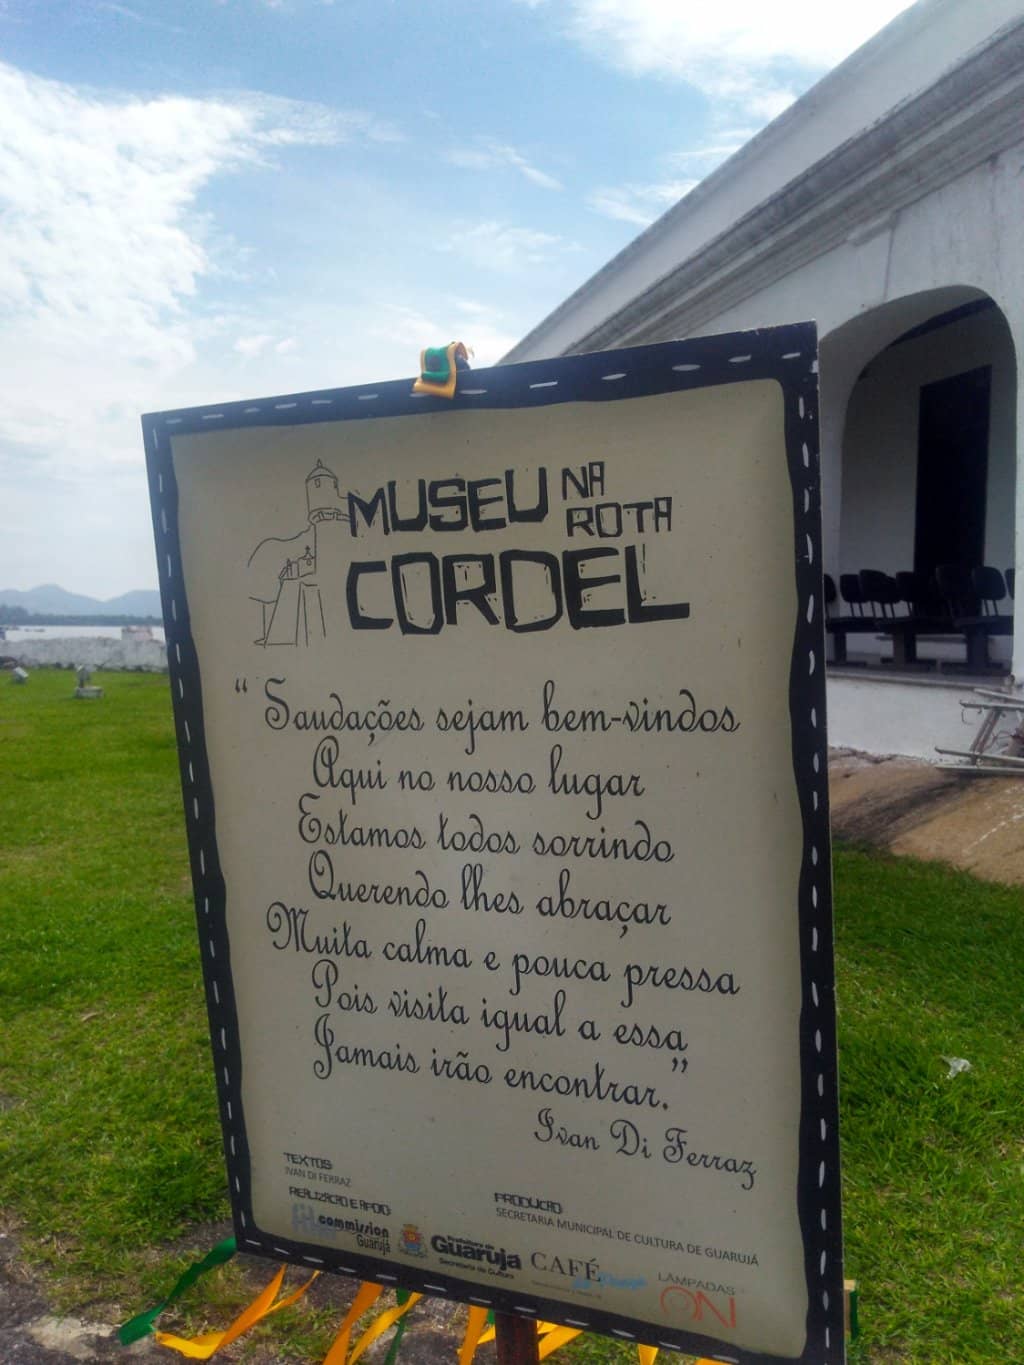 MUSEU NA ROTA
CORDEL
“Saudações sejam bem-vindos
Aqui no nosso lugar
Estamos todos sorrindo
Querendo lhes abraçar
Muita calma e pouca pressa
Pois visita igual a essa
Jamais irão encontrar.”
Ivan Di Ferraz
TEXTOS:
IVAN DI FERRAZ
REALIZAÇÃO E APOIO:
PRODUÇÃO:
SECRETARIA MUNICIPAL DE CULTURA DE GUARUJÁ
film commission
Guarujá
Prefeitura de
Guarujá
Secretaria de Cultura
CAFÉ
LÂMPADAS
ON